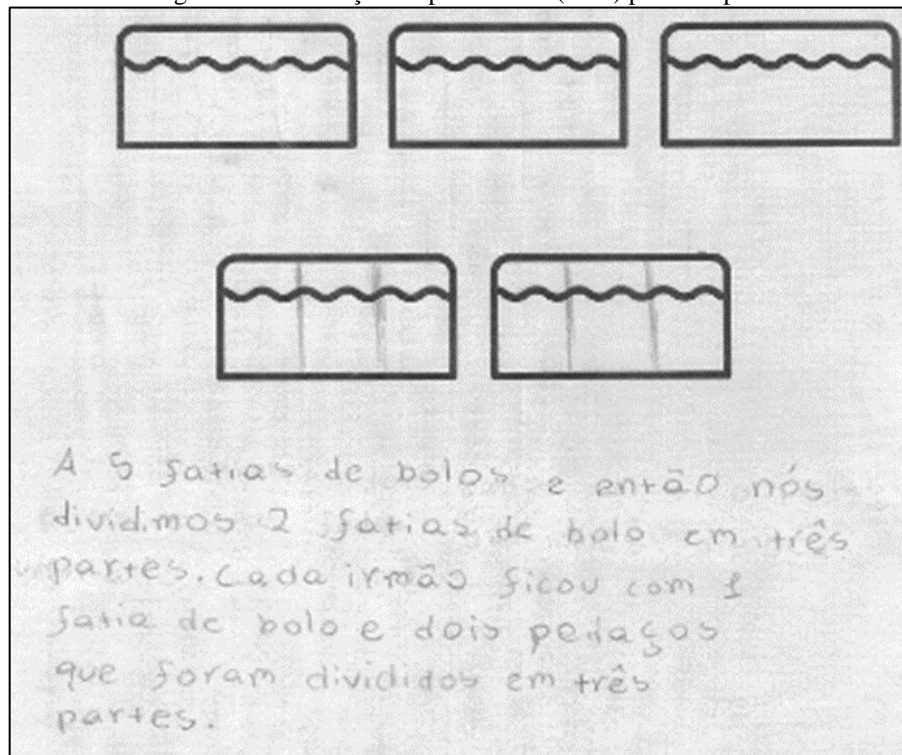 A 5 fatias de bolos e então nós
dividimos 2 fatias de bolo em três
partes. Cada irmão ficou com 1
fatia de bolo e dois pedaços
que foram divididos em três
partes.